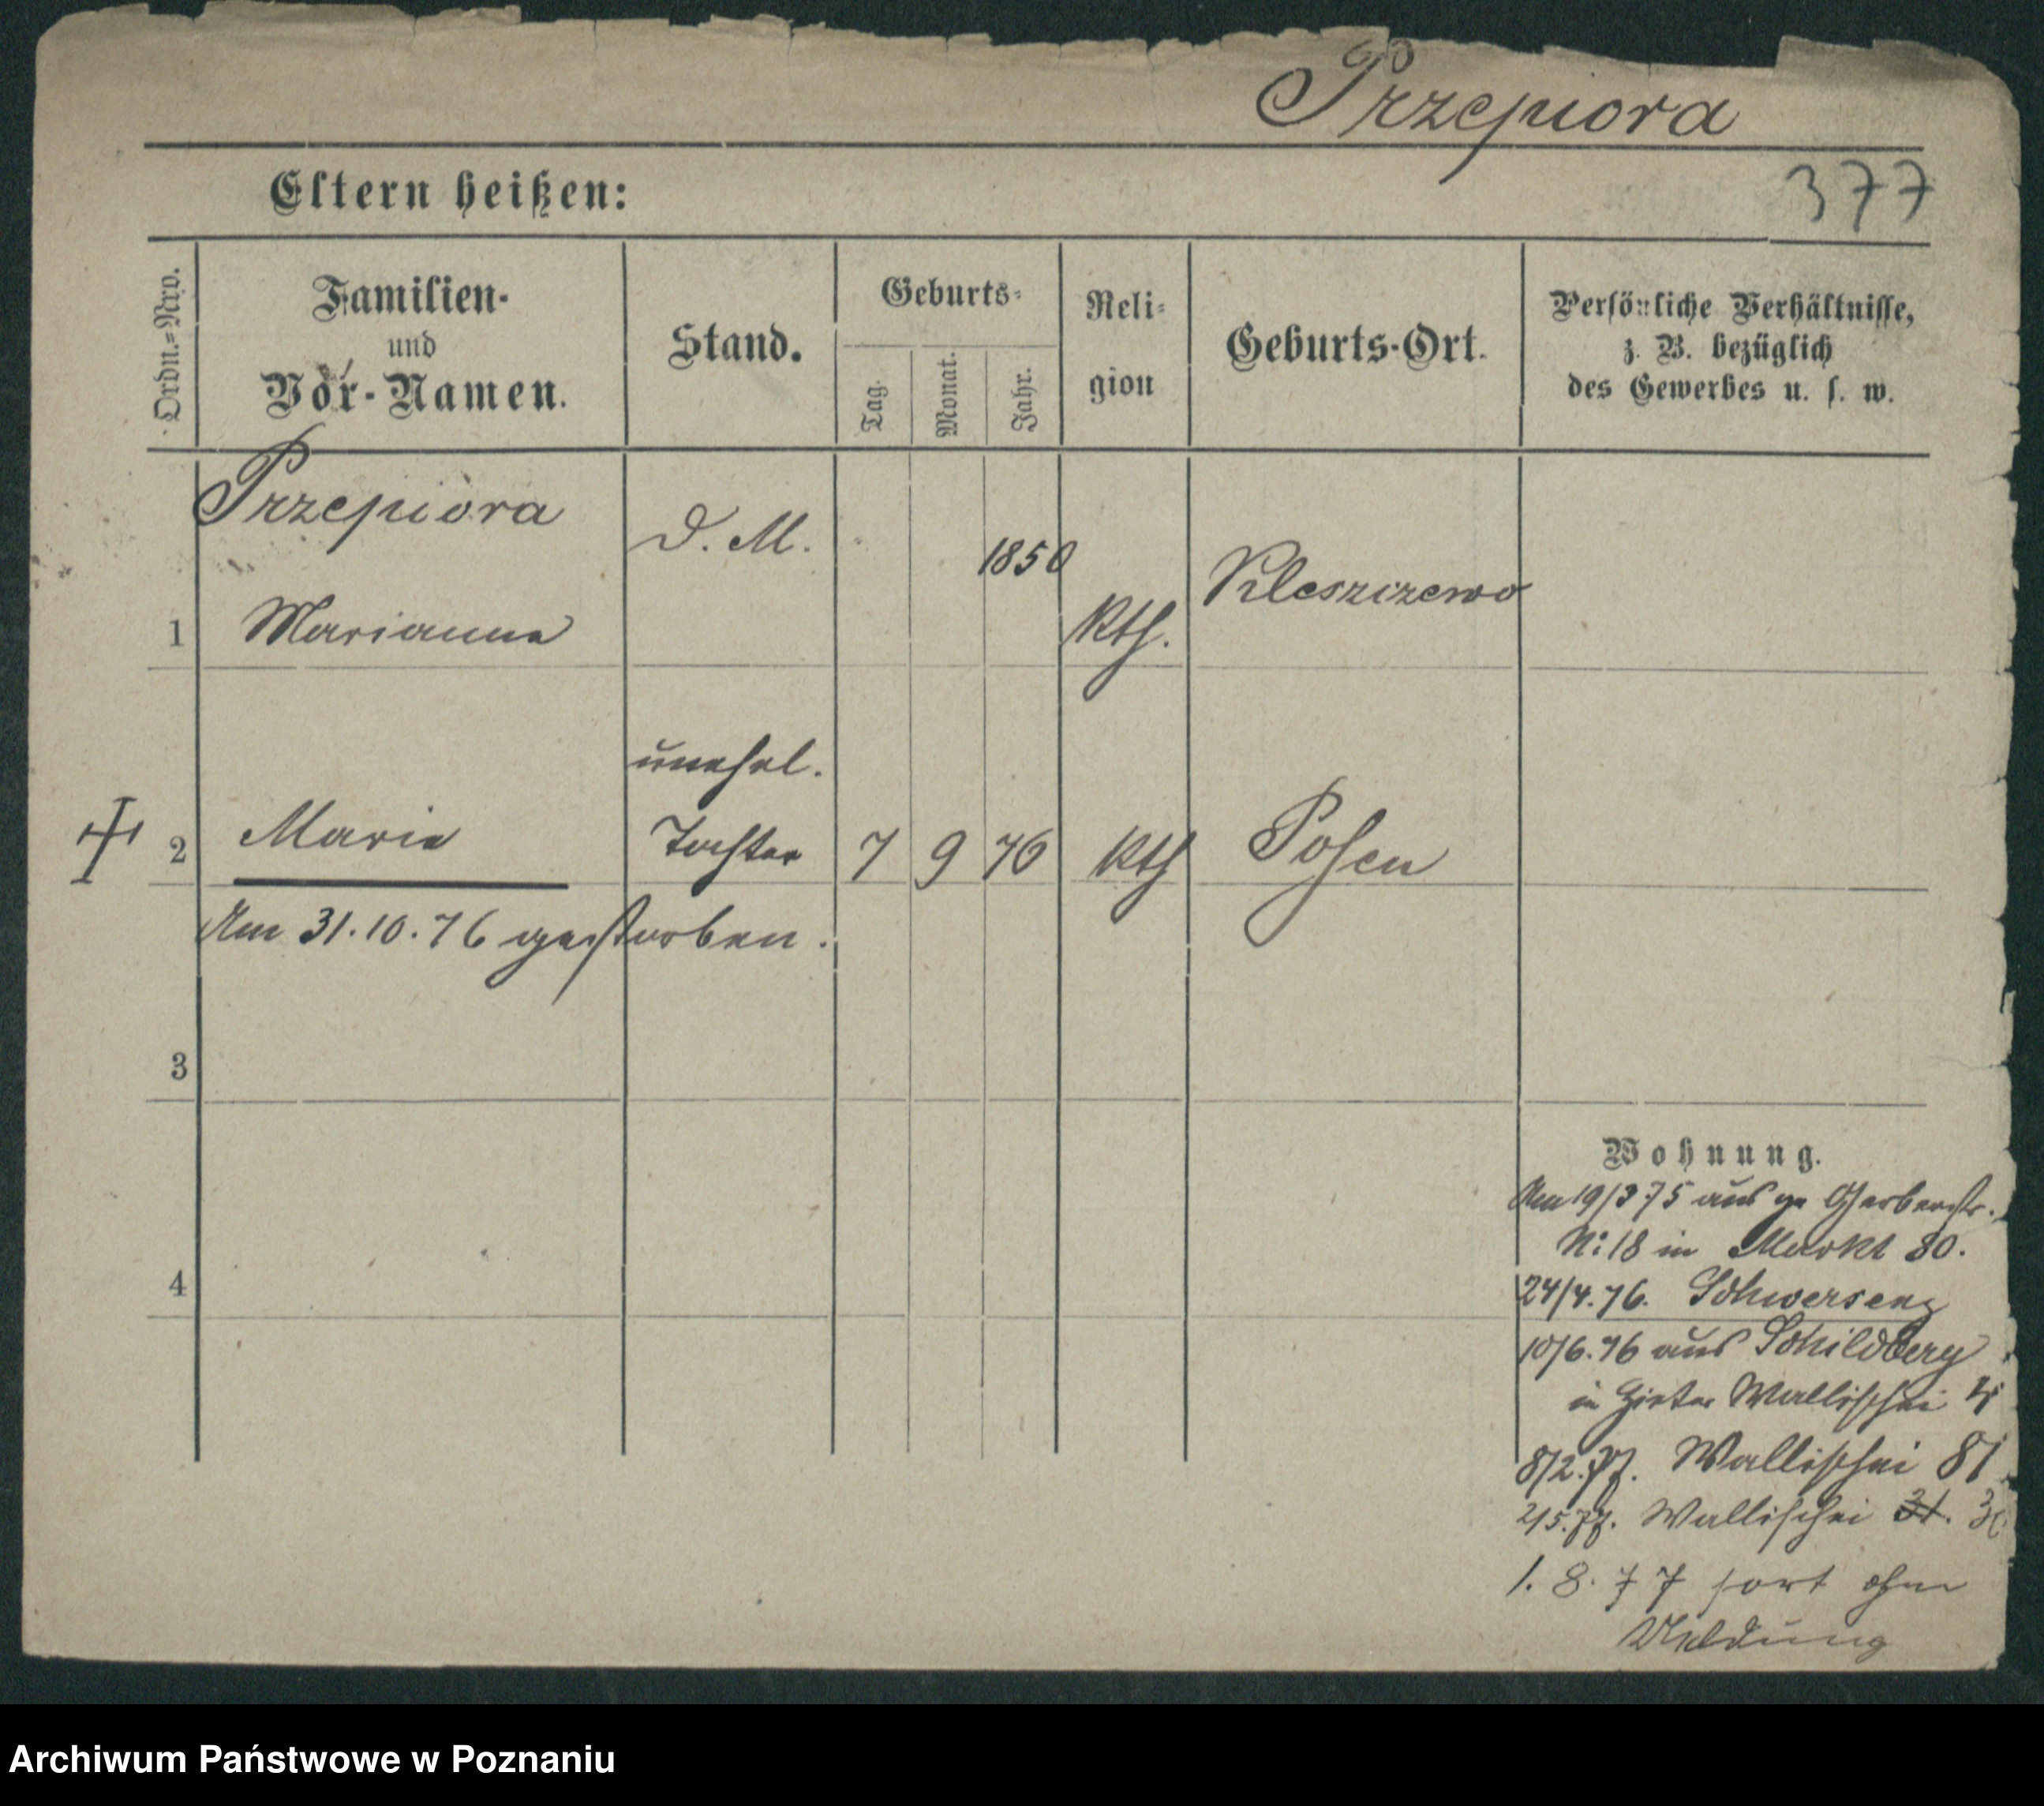 Przepiora
377
Eltern heißen:
Ordn.-Nro.
Familien-
und
Vor-Namen.
Stand.
Geburts-
Tag.
Monat.
Jahr.
Reli-
gion
Geburts-Ort.
Persönliche Verhältnisse,
z. B. bezüglich
des Gewerbes u. s. w.
Przepiora
1 Marianna D. M. 1850 kth. Kleszczewo
unehel.
2 Marie Tochter 7 9 76 kth Posen
Am 31.10.76 gestorben.
3
4
Wohnung.
Am 19/3 75 aus gr Gerberstr.
N: 18 in Markt 80.
24/4.76. Schwersenz
10/6.76 aus Schildberg
in Wallischei
8/2.77. Wallischei 81
2/5.77. Wallischei 31.
1. 8. 77 fort ohne
Meldung
Archiwum Państwowe w Poznaniu